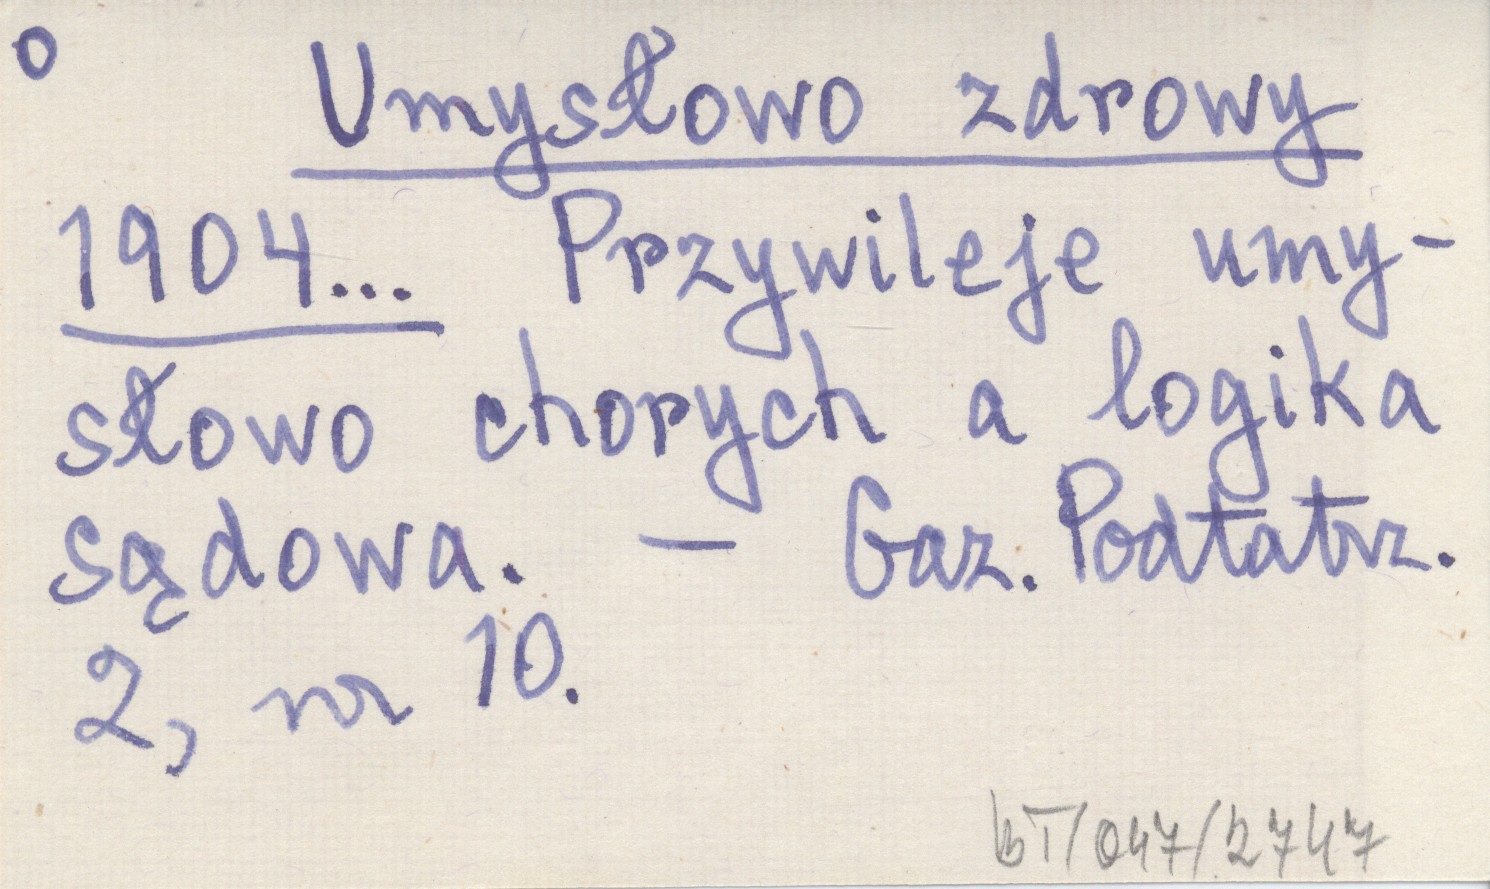 o
Umysłowo zdrowy
1904... Przywileje umy-
słowo chorych a logika
sądowa. — Gaz. Podtatrz.
2, nr 10.
BT/047/2747